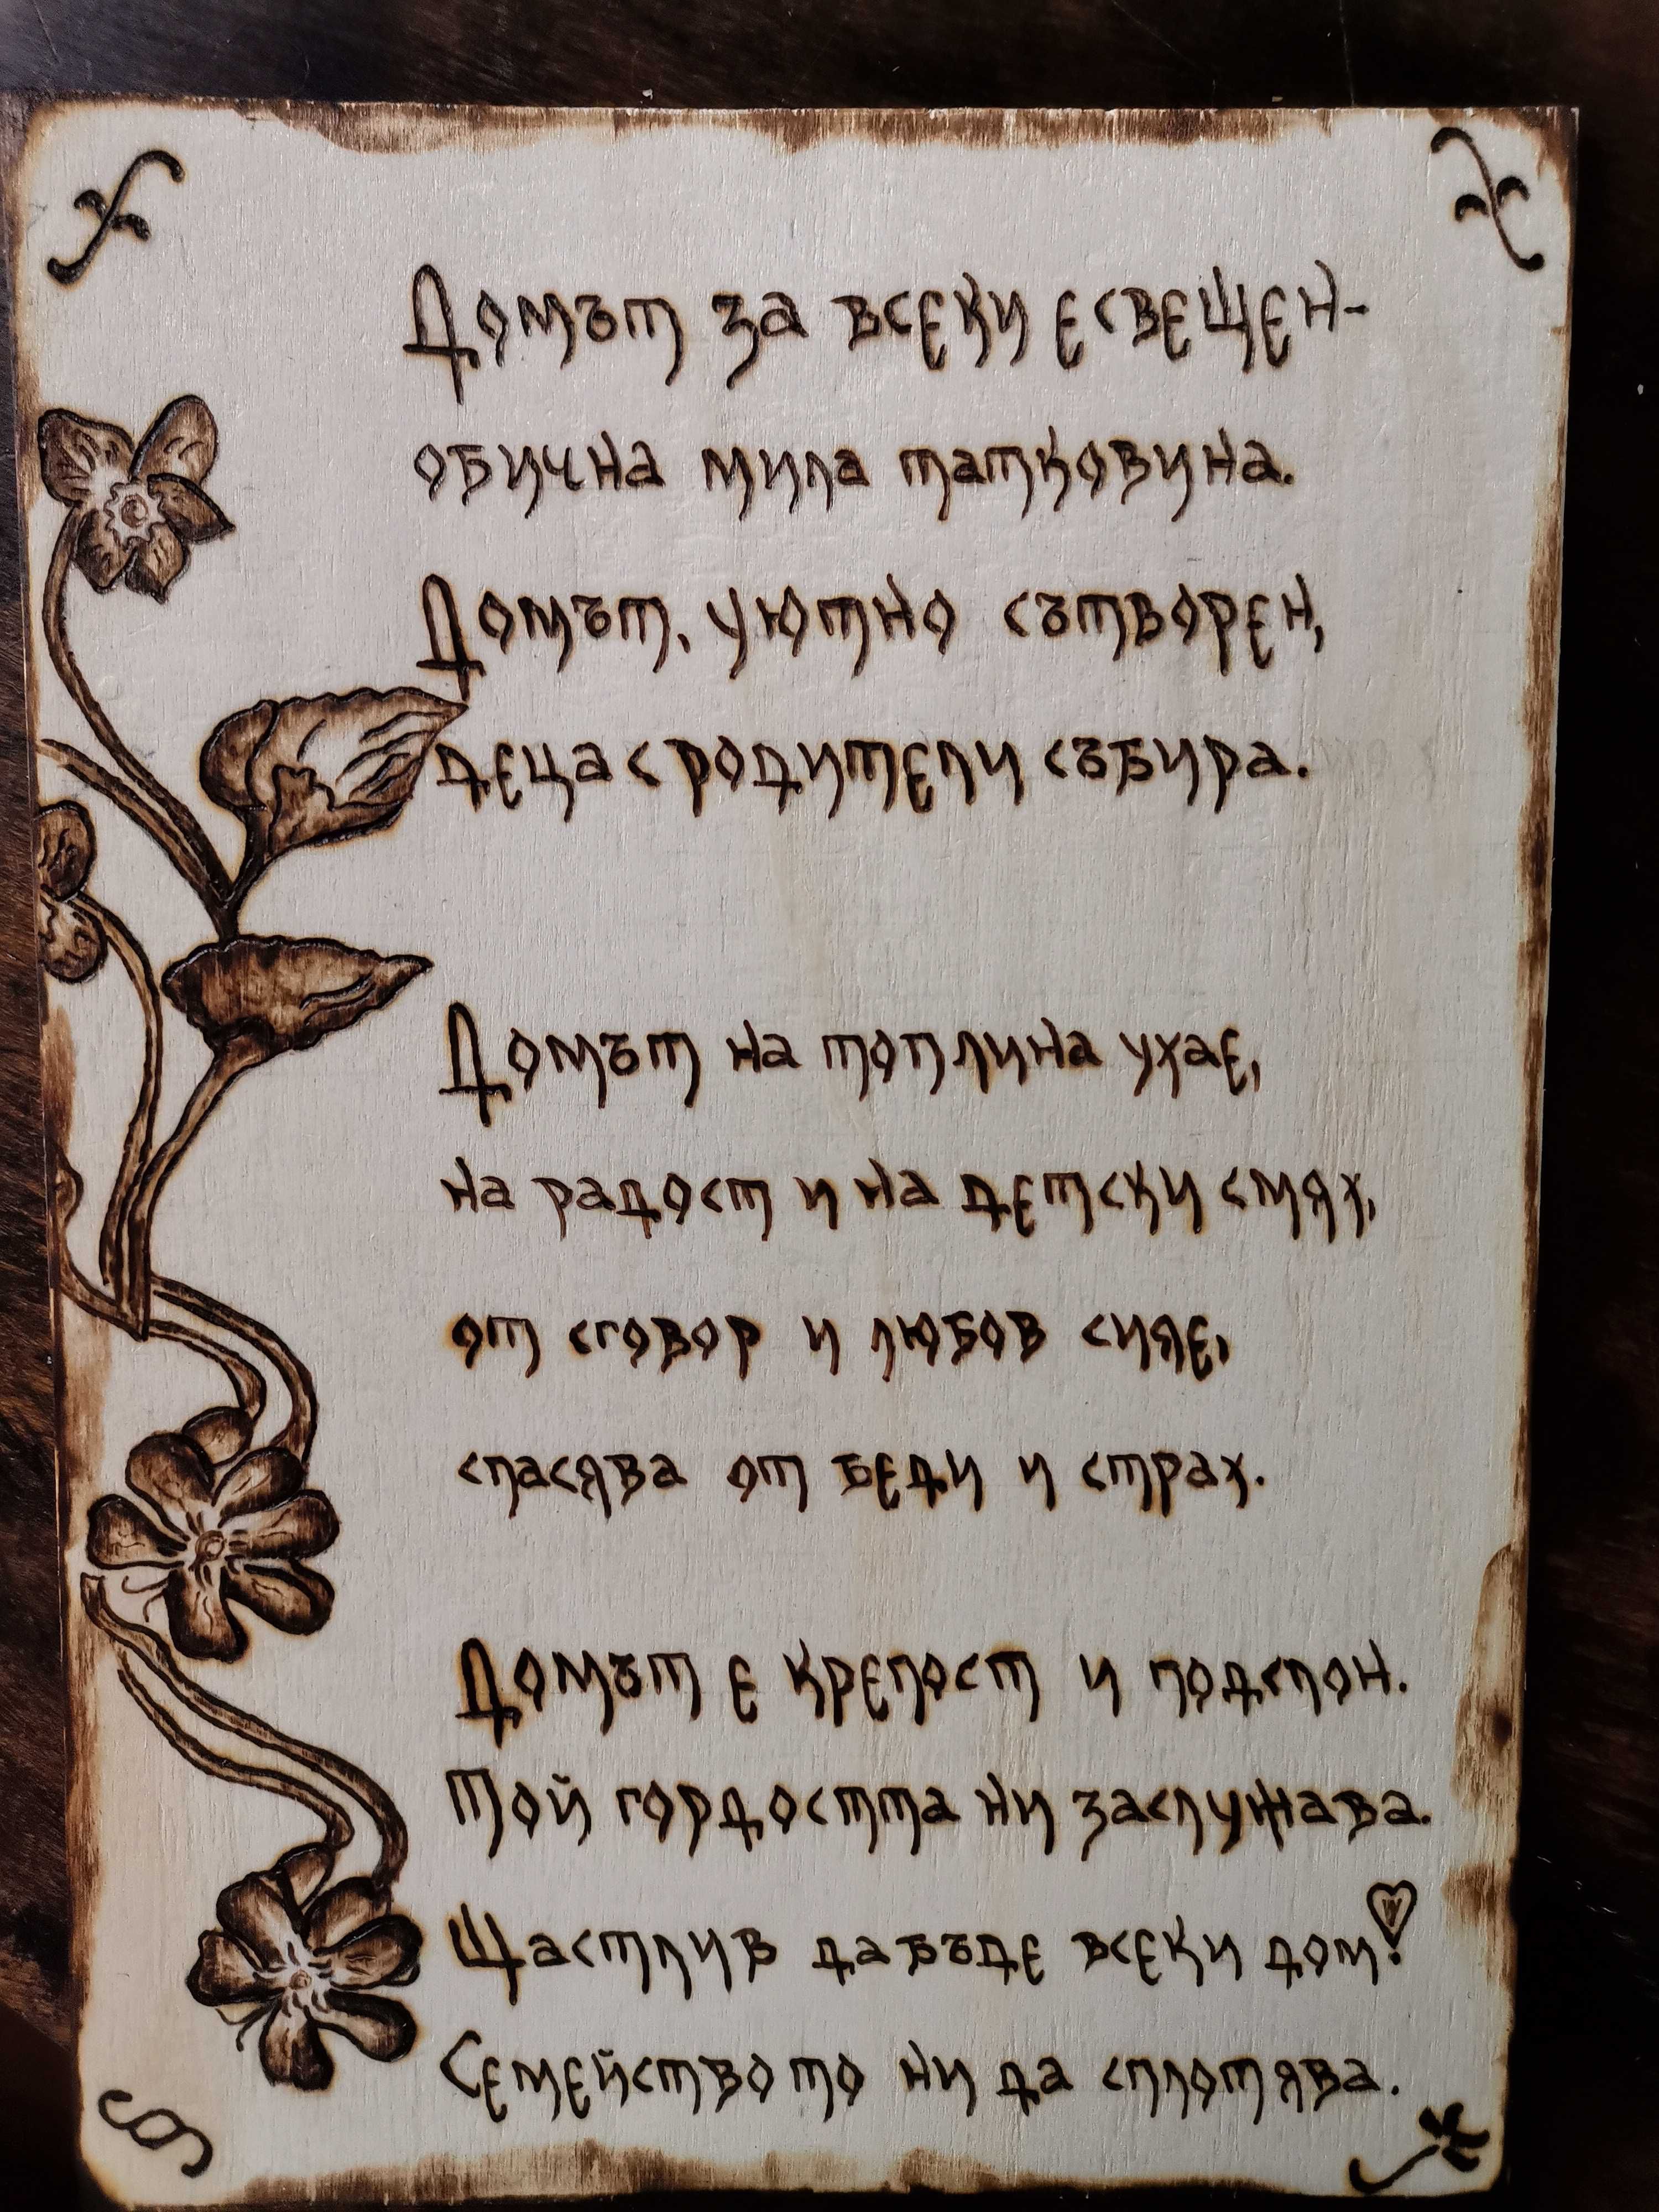 Домът за всеки е свещен-
обична мила татковина.
Домът, уютно сътворен,
деца с родители събира.
Домът на топлина ухае,
на радост и на детски смях,
от сговор и любов сияе,
спасява от беди и страх.
Домът е крепост и подслон.
Той гордостта ни заслужава.
Щастлив да бъде всеки дом!
Семейството ни да сплотява.